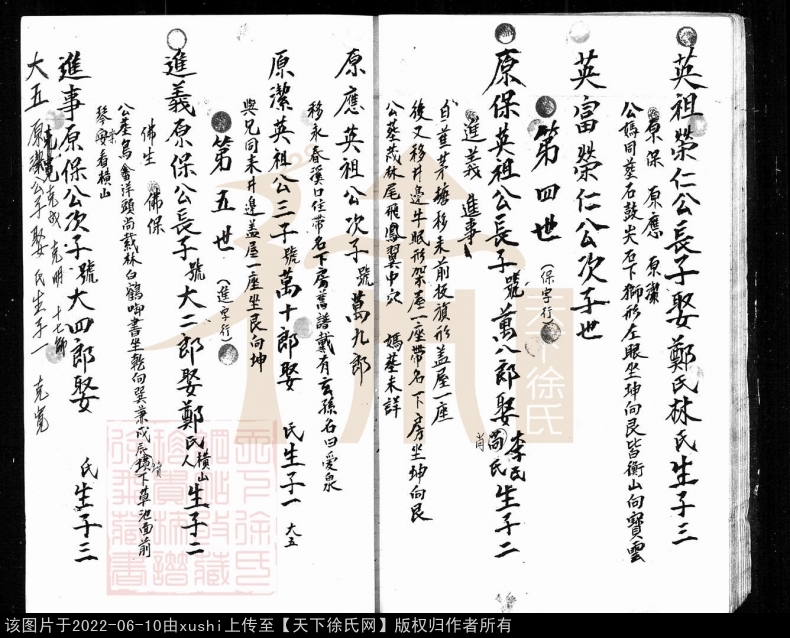 英祖榮仁公長子娶鄭氏林氏生子三
原保 原應 原潔
公媽同葬石鼓尖石下獅形左眼坐坤向艮皆衡山向寶雲
英富榮仁公次子世
第四世
(保字行)
原保英祖公長子號萬八郎娶李氏生子二
進義 進事
自苴茅塘移未前板旗形盖屋一座
後又移井邊牛眠形架屋一座帶名下房坐坤向艮
公葬茂林尾飛鳳翼中穴 媽墓未詳
原應英祖公次子號萬九郎
移永春溪口住帶名下房舊譜載有玄孫名曰愛泉
原潔英祖公三子號萬十郎娶 氏生子一 大五
與兄同未井邊盖屋一座坐艮向坤
第五世
(進字行)
進義原保公長子號大二郎娶鄭氏橫山人生子二
佛生 佛保
公葬烏 洋頭尚載林白鶴 書坐乾向巽兼戌辰 下草池面前
看橫山
進事原保公次子號大四郎娶 氏生子三
克成 克明 十七郎
大五原潔公子娶氏生子一 克寬
天下徐氏
该图片于2022-06-10由xushi上传至【天下徐氏网】版权归作者所有